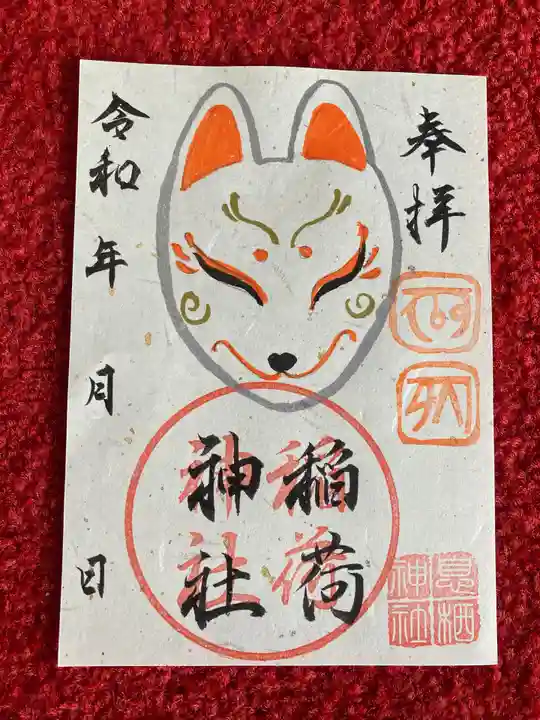 奉拝
稲荷
神社
息栖
神社
令和 年 月 日